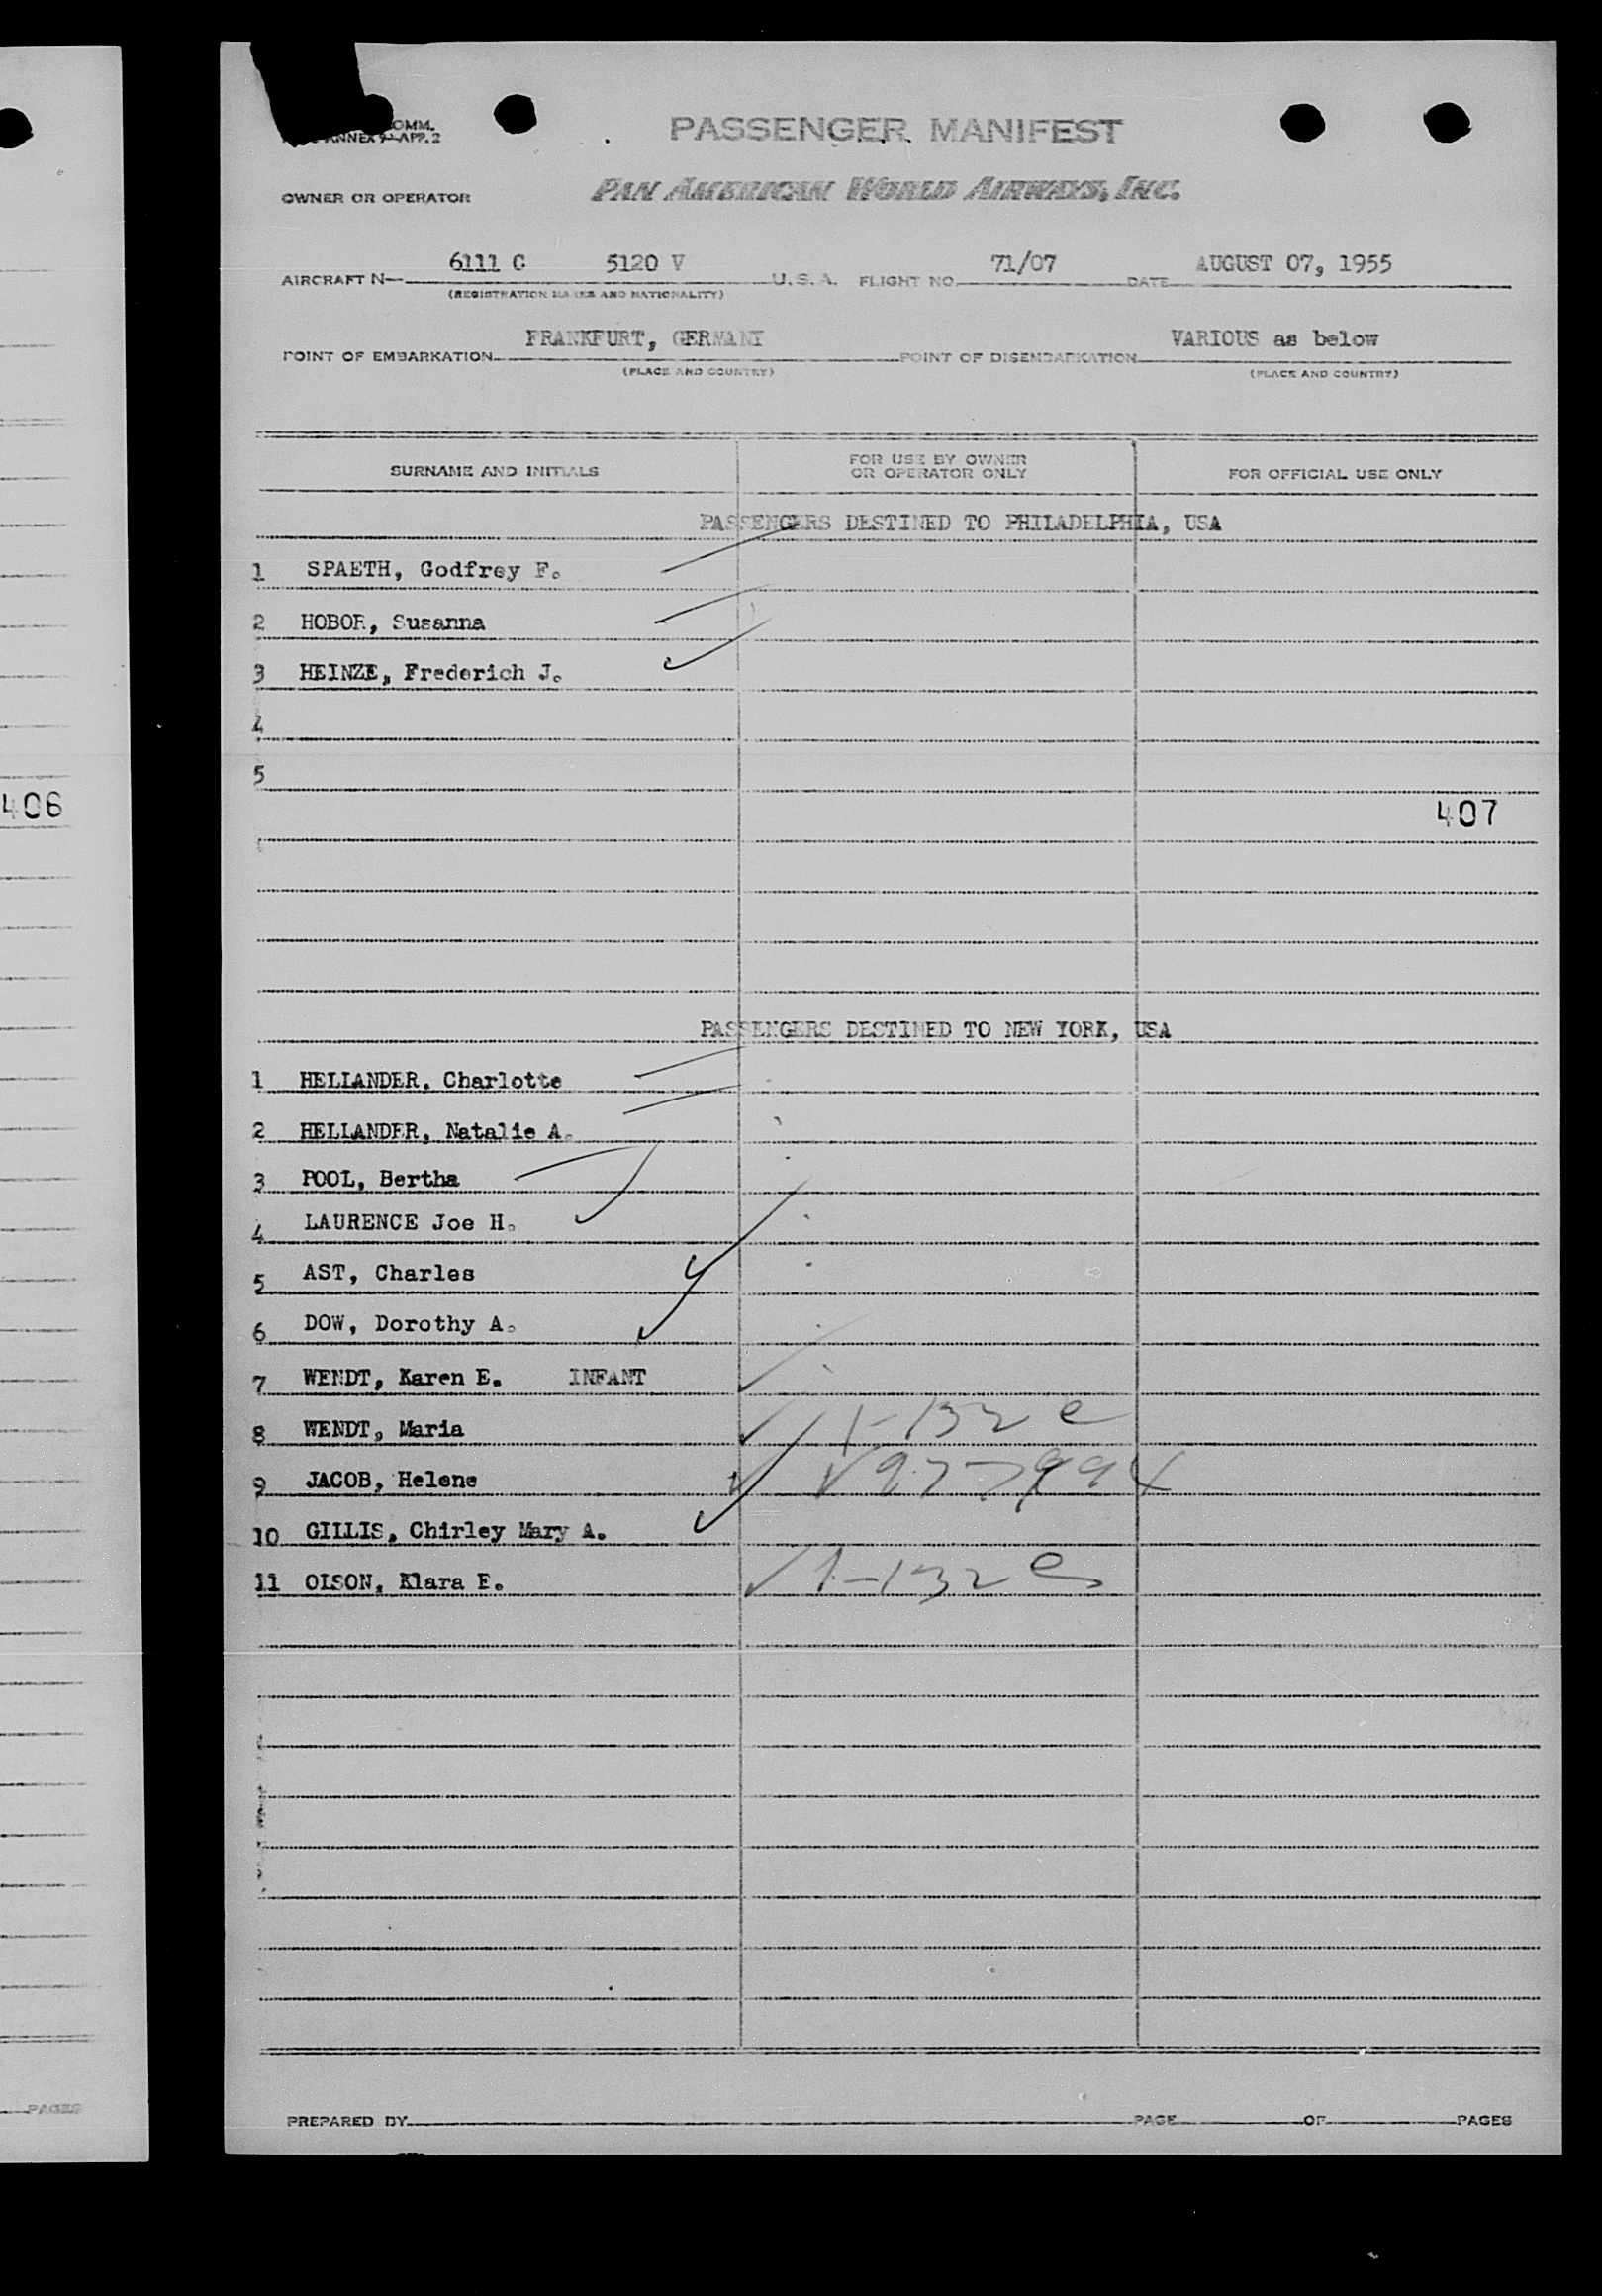 OMM.
ANNEX 9-APP. 2
PASSENGER MANIFEST
OWNER OR OPERATOR PAN AMERICAN WORLD AIRWAYS, INC.
AIRCRAFT N— 6111 C 5120 V U.S.A. FLIGHT NO. 71/07 DATE AUGUST 07, 1955
(REGISTRATION MARKS AND NATIONALITY)
POINT OF EMBARKATION FRANKFURT, GERMANY POINT OF DISEMBARKATION VARIOUS as below
(PLACE AND COUNTRY) (PLACE AND COUNTRY)
SURNAME AND INITIALS FOR USE BY OWNER OR OPERATOR ONLY FOR OFFICIAL USE ONLY
PASSENGERS DESTINED TO PHILADELPHIA, USA
1 SPAETH, Godfrey F.
2 HOBOR, Susanna
3 HEINZE, Frederich J.
4
5
406
407
PASSENGERS DESTINED TO NEW YORK, USA
1 HELLANDER, Charlotte
2 HELLANDER, Natalie A.
3 POOL, Bertha
4 LAURENCE Joe H.
5 AST, Charles
6 DOW, Dorothy A.
7 WENDT, Karen E. INFANT
8 WENDT, Maria 1-132 e
9 JACOB, Helene
10 GILLIS, Chirley Mary A.
11 OLSON, Klara E. 1-132 e
PAGES
PREPARED BY PAGE OF PAGES